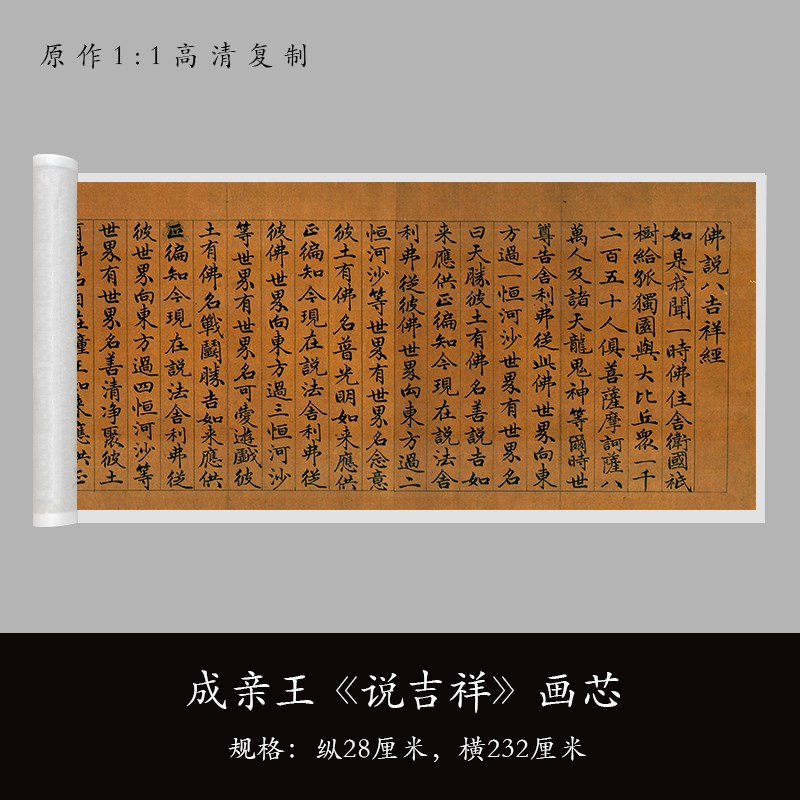 原作1:1高清复制
佛說八吉祥經
如是我聞一時佛住舍衛國祇
樹給孤獨園與大比丘眾一千
二百五十人俱菩薩摩訶薩八
萬人及諸天龍鬼神等爾時世
尊告舍利弗從此佛世界向東
方過一恒河沙世界有世界名
曰天勝彼土有佛名善說吉如
來應供正徧知今現在說法舍
利弗從彼佛世界向東方過二
恒河沙等世界有世界名念意
彼土有佛名普光明如來應供
正徧知今現在說法舍利弗從
彼佛世界向東方過三恒河沙
等世界有世界名可愛遊戲彼
土有佛名戰鬬勝吉如來應供
正徧知今現在說法舍利弗從
彼世界向東方過四恒河沙等
世界有世界名善清净聚彼土
有佛名自在幢王如來應供正
成亲王《说吉祥》画芯
规格：纵28厘米，横232厘米